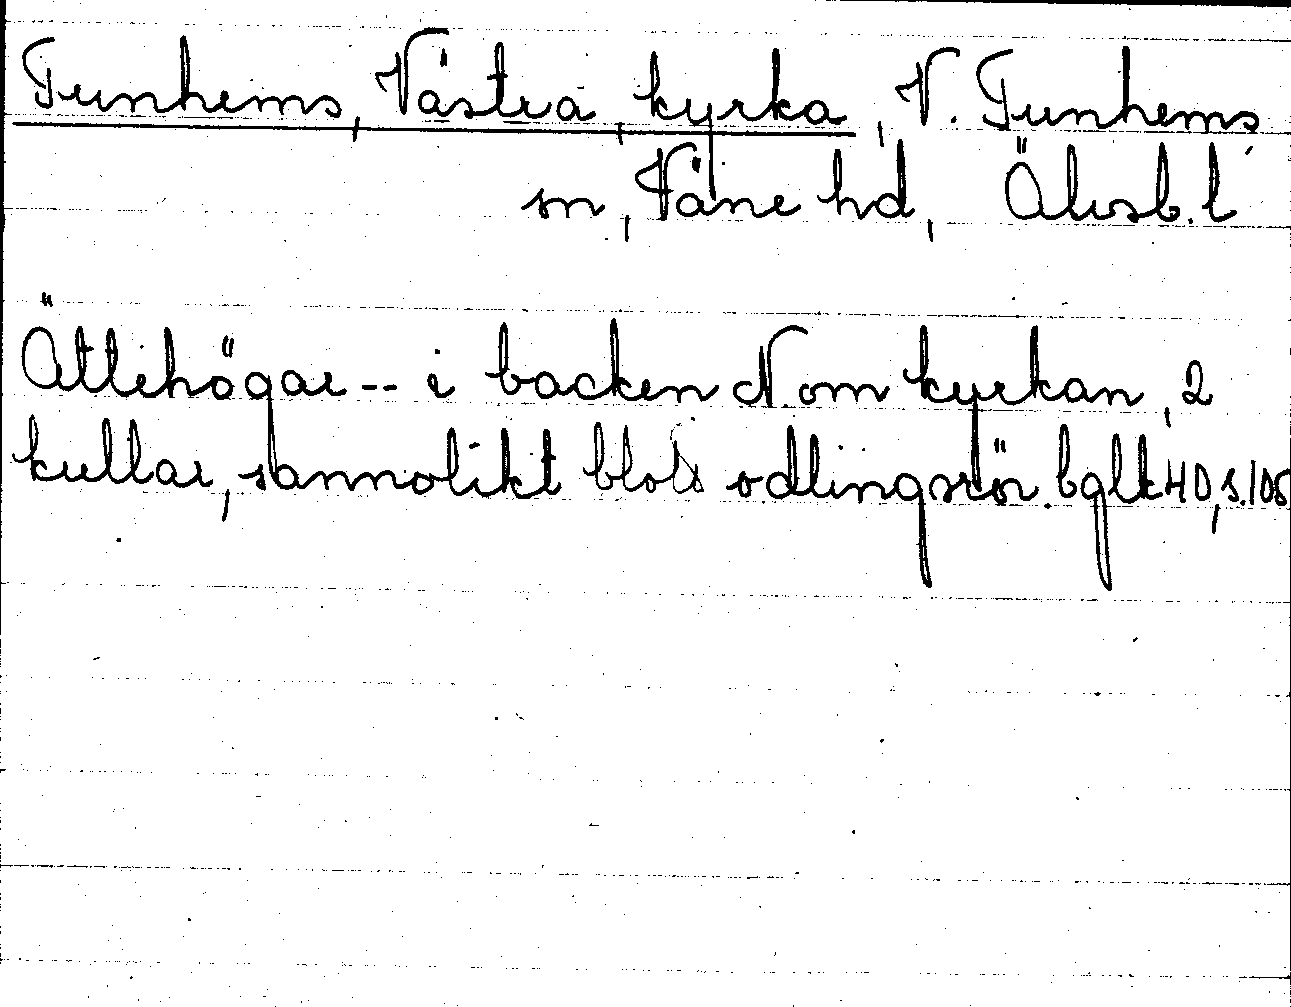 Tunhems, Västra, kyrka, V. Tunhems
sn, Väne hd, Älvsb. l
Ättehögar -- i backen N om kyrkan, 2
kullar, sannolikt blott odlingsrör. bglk HD, s. 105